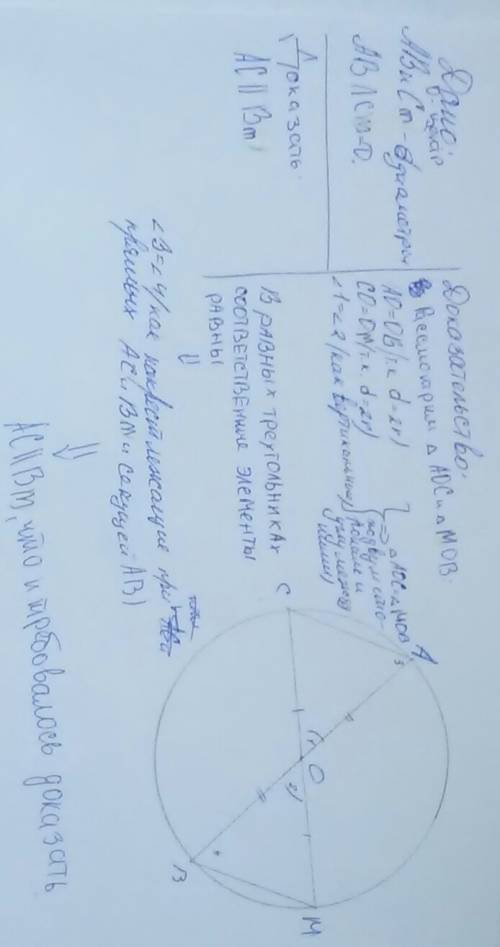 Дано:
О-центр
AB и CM - диаметры
AB ∩ CM = O.
Доказать:
AC || BM
Доказательство:
Рассмотрим △ AOC и △ MOB.
AO=OB (т.к d=2r)
CO=OM (т.к d=2r)
∠1=∠2 (как вертикальные)
} => △AOC=△MOB
по двум сто-
ронам и
углу между
ними)
⇓
В равных треугольниках
соответственные элементы
равны
∠3=∠4 (как накрест лежащие при
прямых AC и BM и секущей AB)
⇓
AC||BM, что и требовалось доказать
A
3
C
1
O
2
B
M